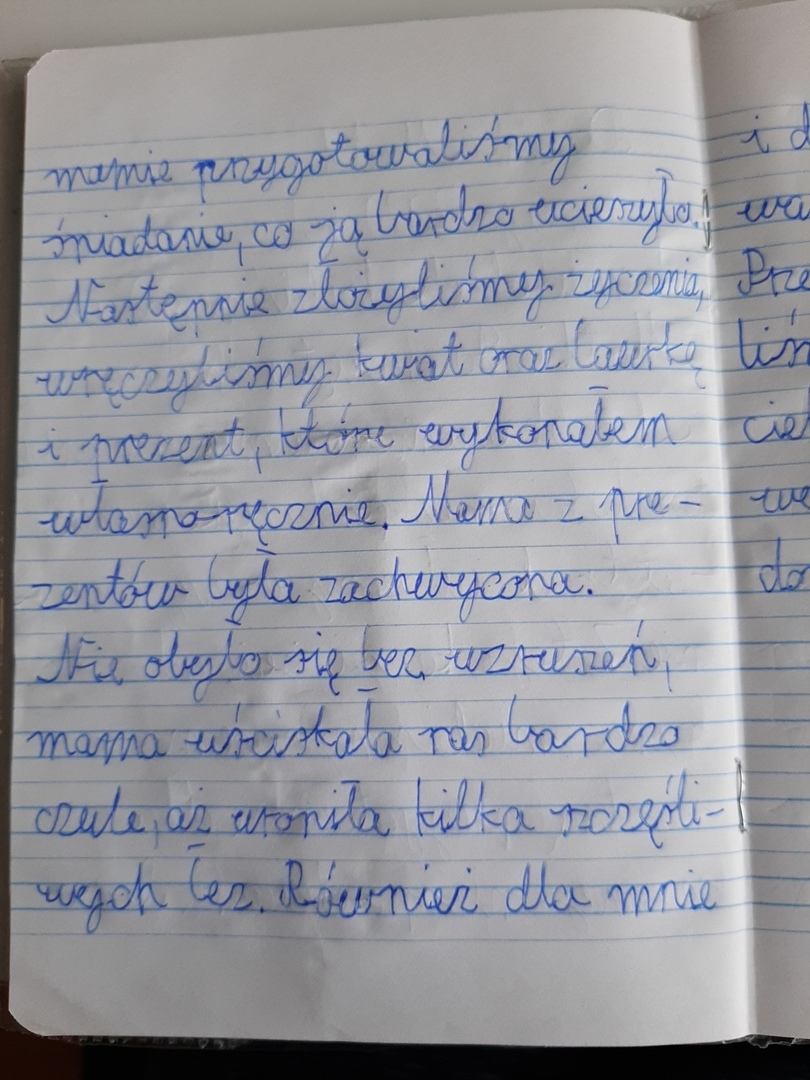 mamie przygotowaliśmy
śniadanie, co ją bardzo ucieszyło.
Następnie złożyliśmy życzenia,
wręczyliśmy kwiat oraz laurkę
i prezent, które wykonałem
własnoręcznie. Mama z pre-
zentów była zachwycona.
Nie obyło się bez wzruszeń,
mama uściskała nas bardzo
czule, aż uroniła kilka szczęśli-
wych łez. Również dla mnie
i d
wa
Prze
liśm
cie
we
do